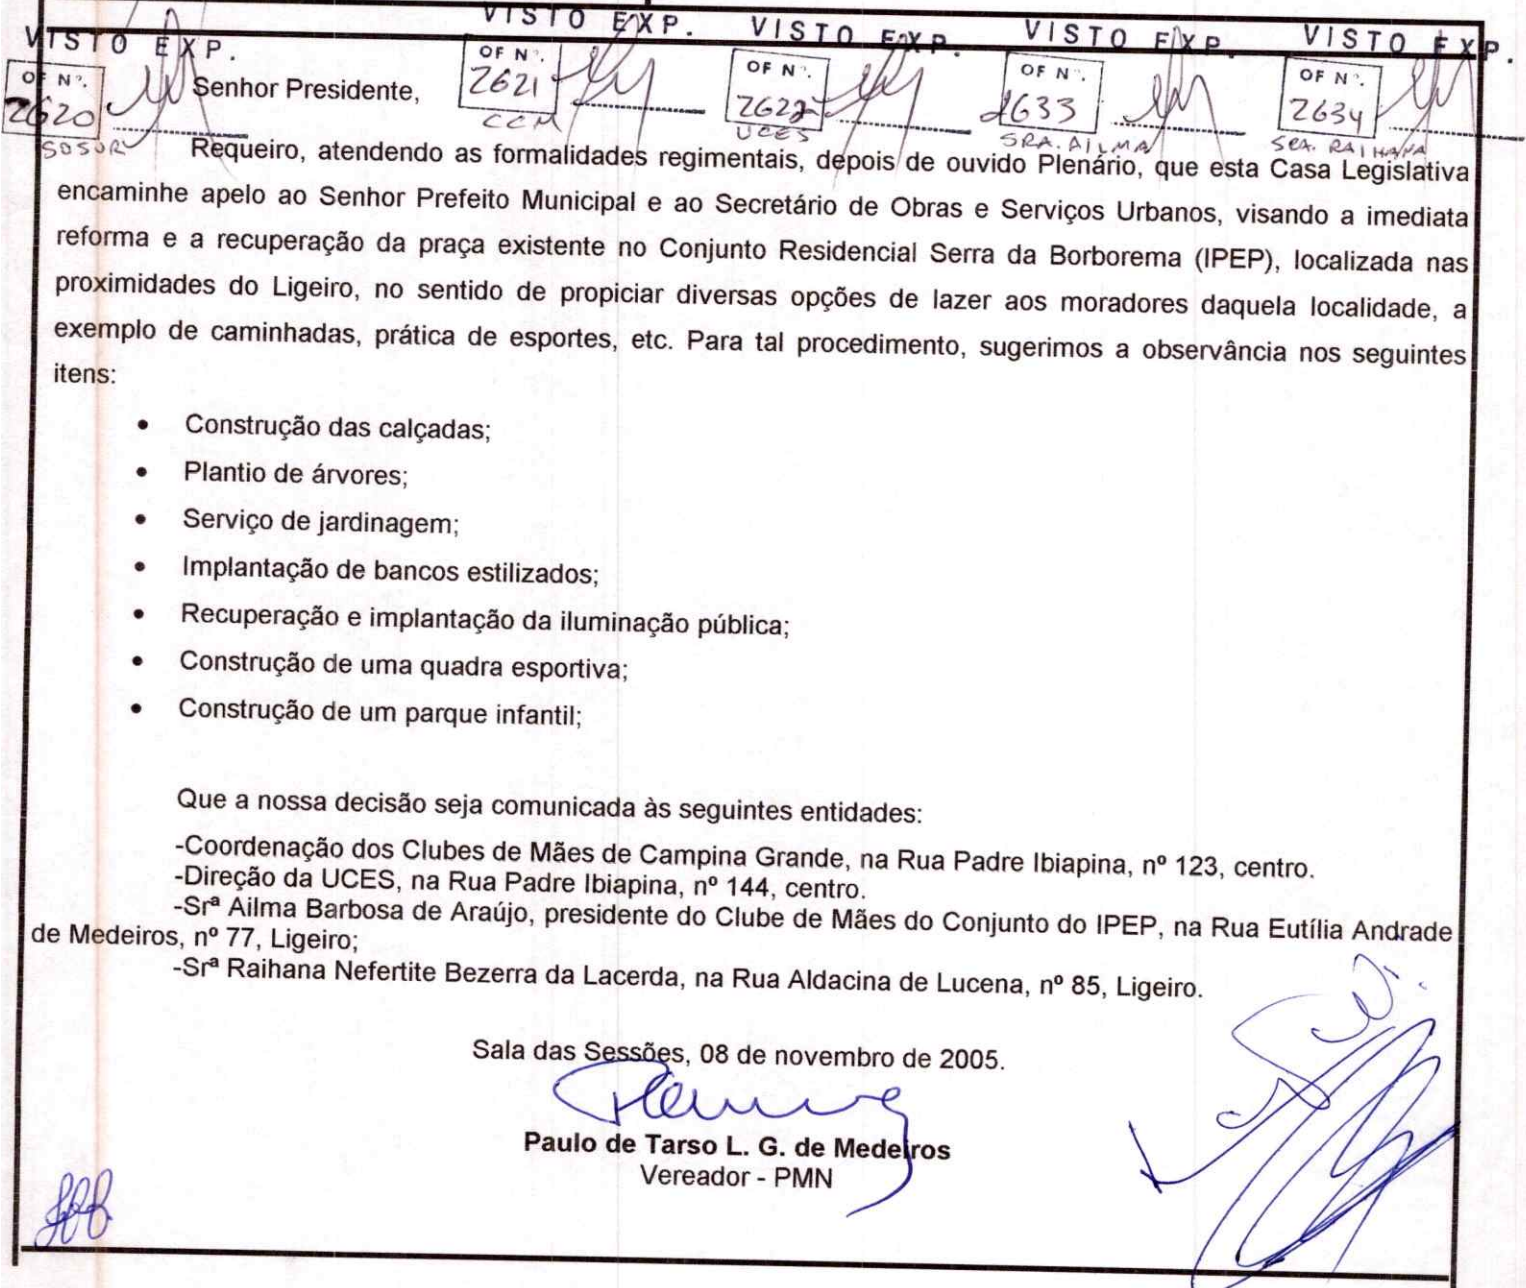 VISTO EXP. VISTO EXP. VISTO EXP. VISTO EXP. VISTO EXP.
OF Nº. 2620 OF Nº. 2621 OF Nº. 2622 OF Nº. 2633 OF Nº. 2634
SOSUR CCM UCES SRA. AILMA SRA. RAIHANA
Senhor Presidente,
Requeiro, atendendo as formalidades regimentais, depois de ouvido Plenário, que esta Casa Legislativa
encaminhe apelo ao Senhor Prefeito Municipal e ao Secretário de Obras e Serviços Urbanos, visando a imediata
reforma e a recuperação da praça existente no Conjunto Residencial Serra da Borborema (IPEP), localizada nas
proximidades do Ligeiro, no sentido de propiciar diversas opções de lazer aos moradores daquela localidade, a
exemplo de caminhadas, prática de esportes, etc. Para tal procedimento, sugerimos a observância nos seguintes
itens:
• Construção das calçadas;
• Plantio de árvores;
• Serviço de jardinagem;
• Implantação de bancos estilizados;
• Recuperação e implantação da iluminação pública;
• Construção de uma quadra esportiva;
• Construção de um parque infantil;
Que a nossa decisão seja comunicada às seguintes entidades:
-Coordenação dos Clubes de Mães de Campina Grande, na Rua Padre Ibiapina, nº 123, centro.
-Direção da UCES, na Rua Padre Ibiapina, nº 144, centro.
-Srª Ailma Barbosa de Araújo, presidente do Clube de Mães do Conjunto do IPEP, na Rua Eutília Andrade
de Medeiros, nº 77, Ligeiro;
-Srª Raihana Nefertite Bezerra da Lacerda, na Rua Aldacina de Lucena, nº 85, Ligeiro.
Sala das Sessões, 08 de novembro de 2005.
Paulo de Tarso L. G. de Medeiros
Vereador - PMN